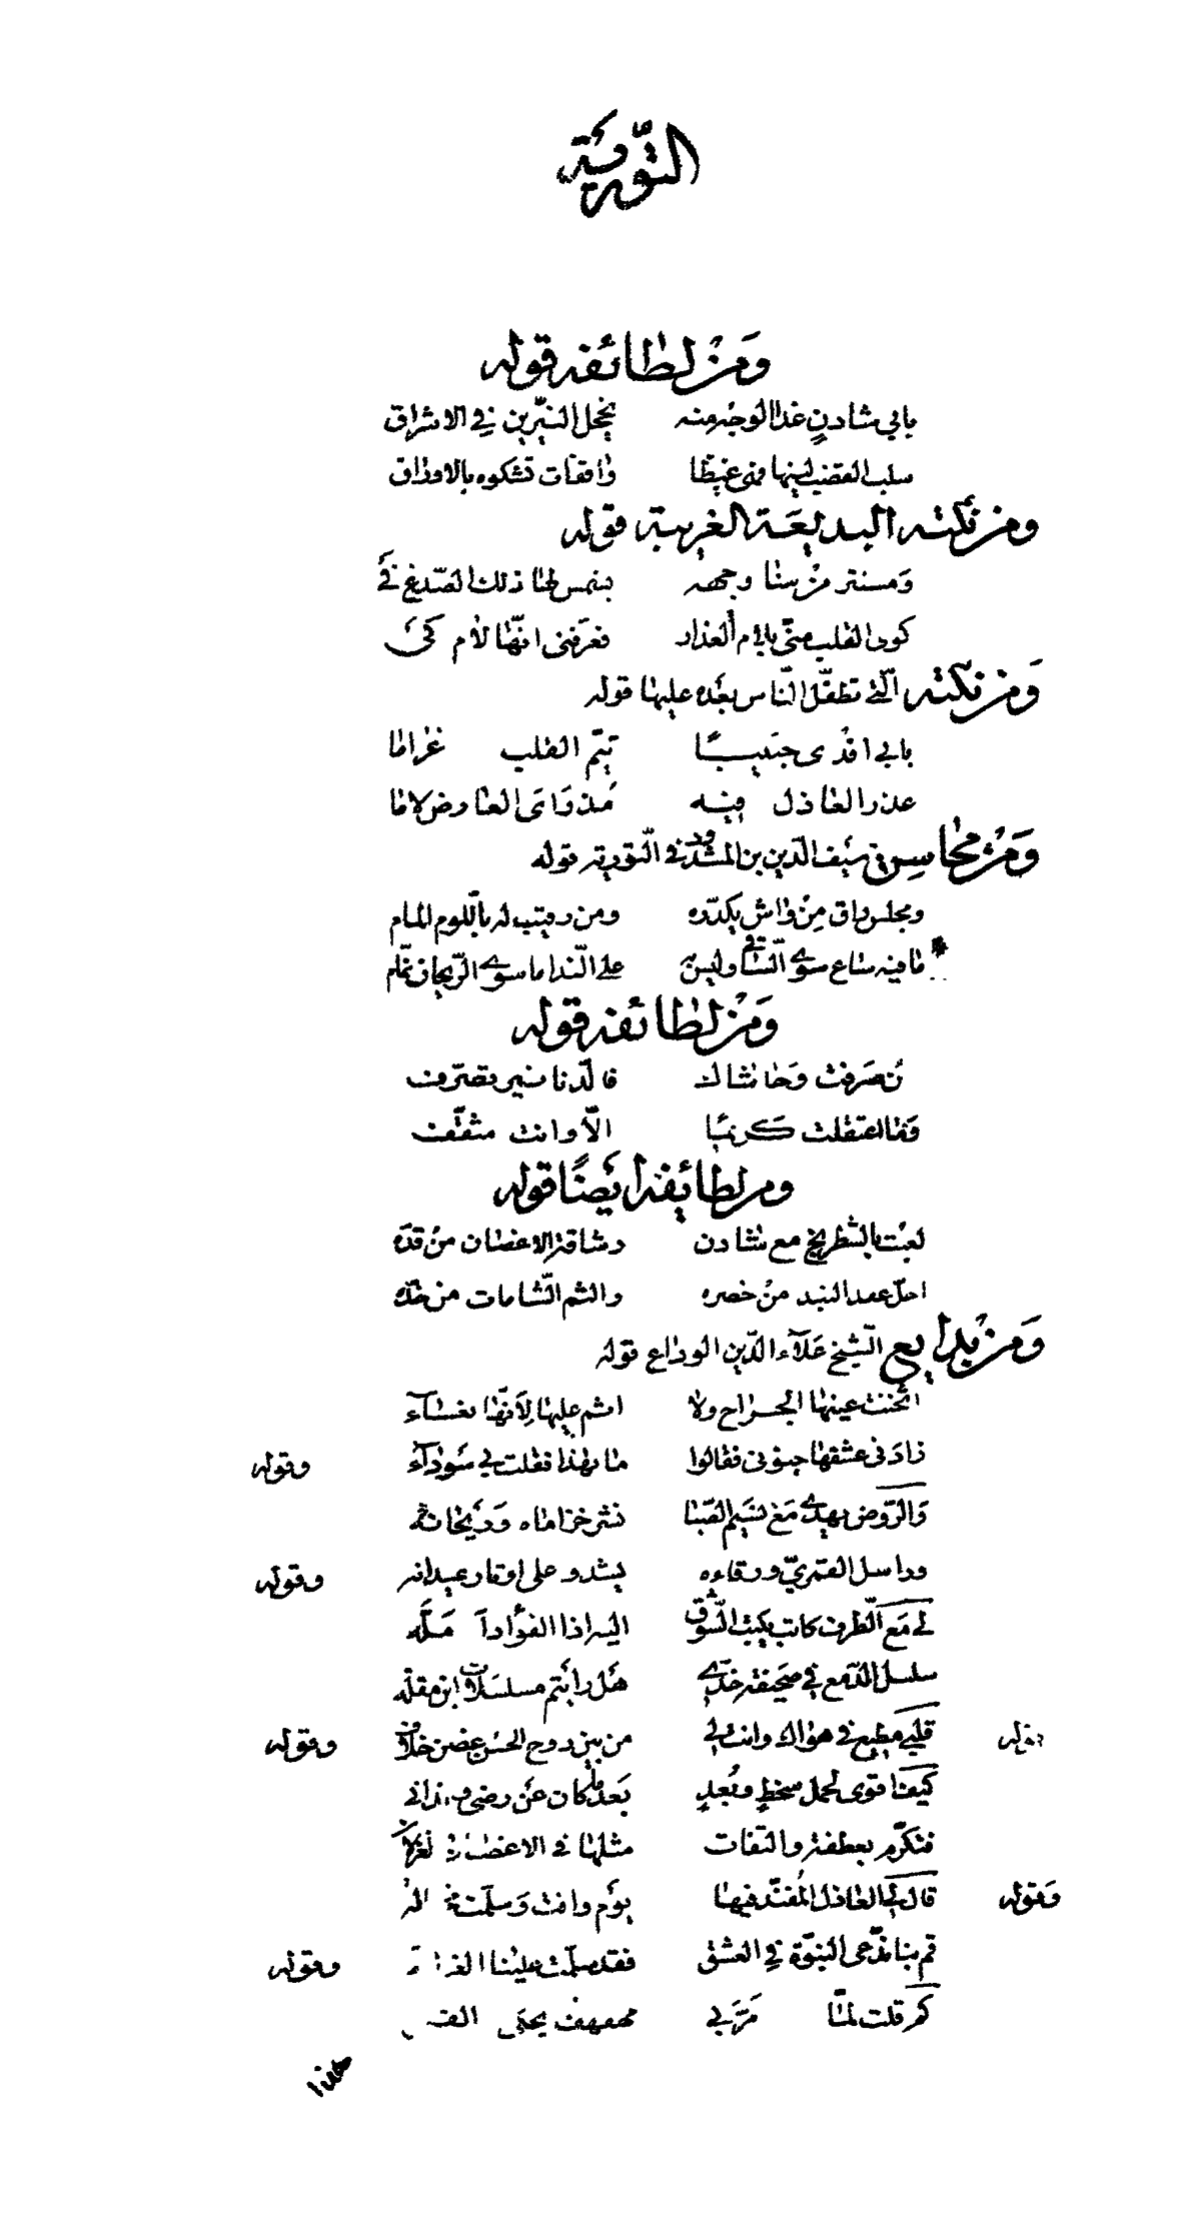 التورية
ومن لطائفه قوله
بابي شادن غدا الوجه منه يخجل النيرين في الاشراق
سلب القضب لينها فهى غيظا واقفات تشكوه بالاوراق
ومن نكته البديعة الغريبة قوله
ومستتر من سنا وجهه بشمس لها ذلك الصدغ في
كوى القلب منى بلام العذار فعرفنى انها لام كى
ومن نكته التي تطفل الناس بعده عليها قوله
بابي افدى حبيبا تيم القلب غراما
عذر العاذل فيه مذ راى العارض لاما
ومن محاسن سيف الدين بن المشد في التورية قوله
ومجلس راق من واش يكدره ومن رقيب له باللوم المام
ما فيه ساع سوى الساقي وليس به على الندامى سوى الريحان نمام
ومن لطائفه قوله
تصرفت وحاشاك فالدنا نير تصرف
وما اعتقلت كريما الا وانت مثقف
ومن لطايفه ايضا قوله
لعبت بالشطرنج مع شادن رشاقة الاغصان من قده
احل عقد البند من خصره والثم الشامات من خده
ومن بدايع الشيخ علاء الدين الوداع قوله
اثخنت عينها الجراح ولا اثم عليها لانها نعساء
زاد في عشقها جنونى فقالوا ما بهذا فقلت بي سوداء وقوله
والروض يهدى مع نسيم الصبا نشر خزاماه وريحانه
وراسل القمري ورقاءه يشدو على اوتار عيدانه وقوله
لي مع الطرف كاتب يكتب الشوق اليه اذا الفؤاد امله
سلسل الدمع في صحيفة خدي هل رايتم مسلسلات ابن مقله
وقوله قلبي مطيع في هواك وانت لي من بين دوح الحسن غصن خلاف وقوله
كيف اقوى لحمل سخط وبعد بعد ما كان عن رضى
فتكرم بعطفة والتفات مثلها في الاغصان
وقوله قال لي العاذل المفند فيها يوم وافت وسلمت
قم بنا ندعى النبوة في العشق فقد سلمت علينا الغزالة وقوله
كم قلت لما مر بي مهفهف يحكى